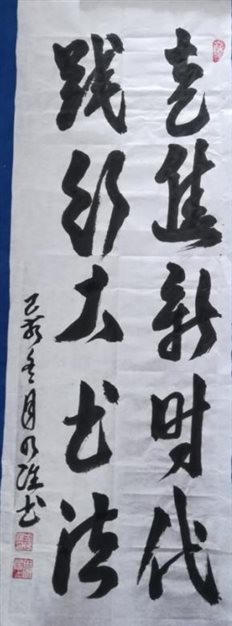 走进新时代
践行大书法
己亥冬月
书